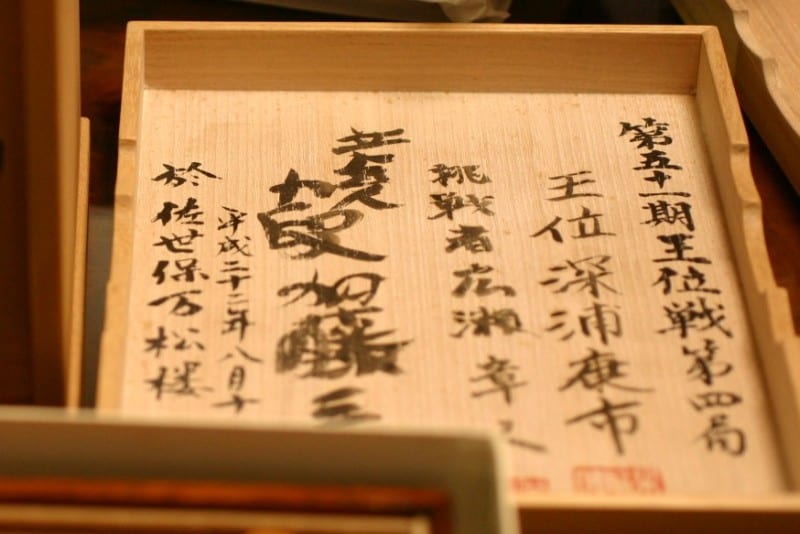 第五十一期王位戦第四局
王位 深浦康市
挑戦者 広瀬章人
加藤
平成二十二年八月十
於 佐世保万松楼